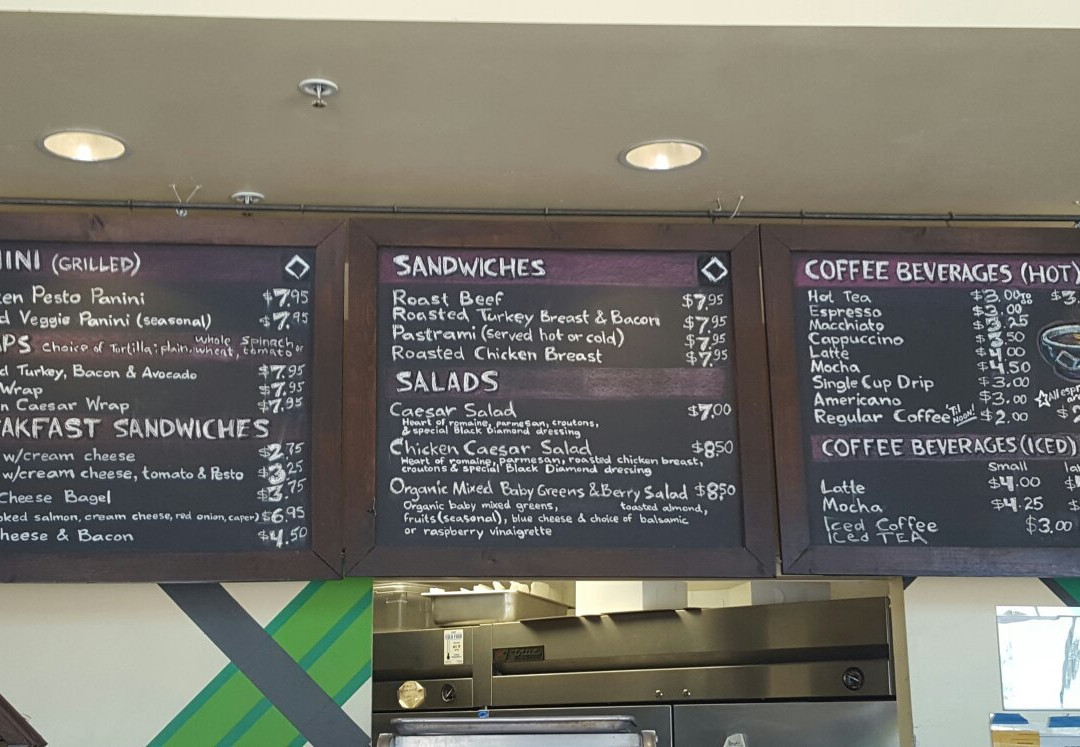 INI (GRILLED)
en Pesto Panini $7.95
d Veggie Panini (seasonal) $7.95
PS choice of Tortilla: plain, whole wheat, spinach or tomato
d Turkey, Bacon & Avocado $7.95
Wrap $7.95
n Caesar Wrap $7.95
AKFAST SANDWICHES
w/cream cheese $2.75
w/cream cheese, tomato & Pesto $3.25
Cheese Bagel $3.75
oked salmon, cream cheese, red onion, caper) $6.95
heese & Bacon $4.50
SANDWICHES
Roast Beef $7.95
Roasted Turkey Breast & Bacon $7.95
Pastrami (served hot or cold) $7.95
Roasted Chicken Breast $7.95
SALADS
Caesar Salad $7.00
Heart of romaine, parmesan, croutons,
& special Black Diamond dressing
Chicken Caesar Salad $8.50
Heart of romaine, parmesan, roasted chicken breast,
croutons & special Black Diamond dressing
Organic Mixed Baby Greens & Berry Salad $8.50
Organic baby mixed greens, toasted almond,
fruits (seasonal), blue cheese & choice of balsamic
or raspberry vinaigrette
COFFEE BEVERAGES (HOT)
Hot Tea $3.00 $3.
Espresso $3.00
Macchiato $3.25
Cappuccino $3.50
Latte $4.00
Mocha $4.50
Single Cup Drip $3.00
Americano $3.00
Regular Coffee 'Til NOON! $2.00
COFFEE BEVERAGES (ICED)
Small
Latte $4.00
Mocha $4.25
Iced Coffee $3.00
Iced TEA